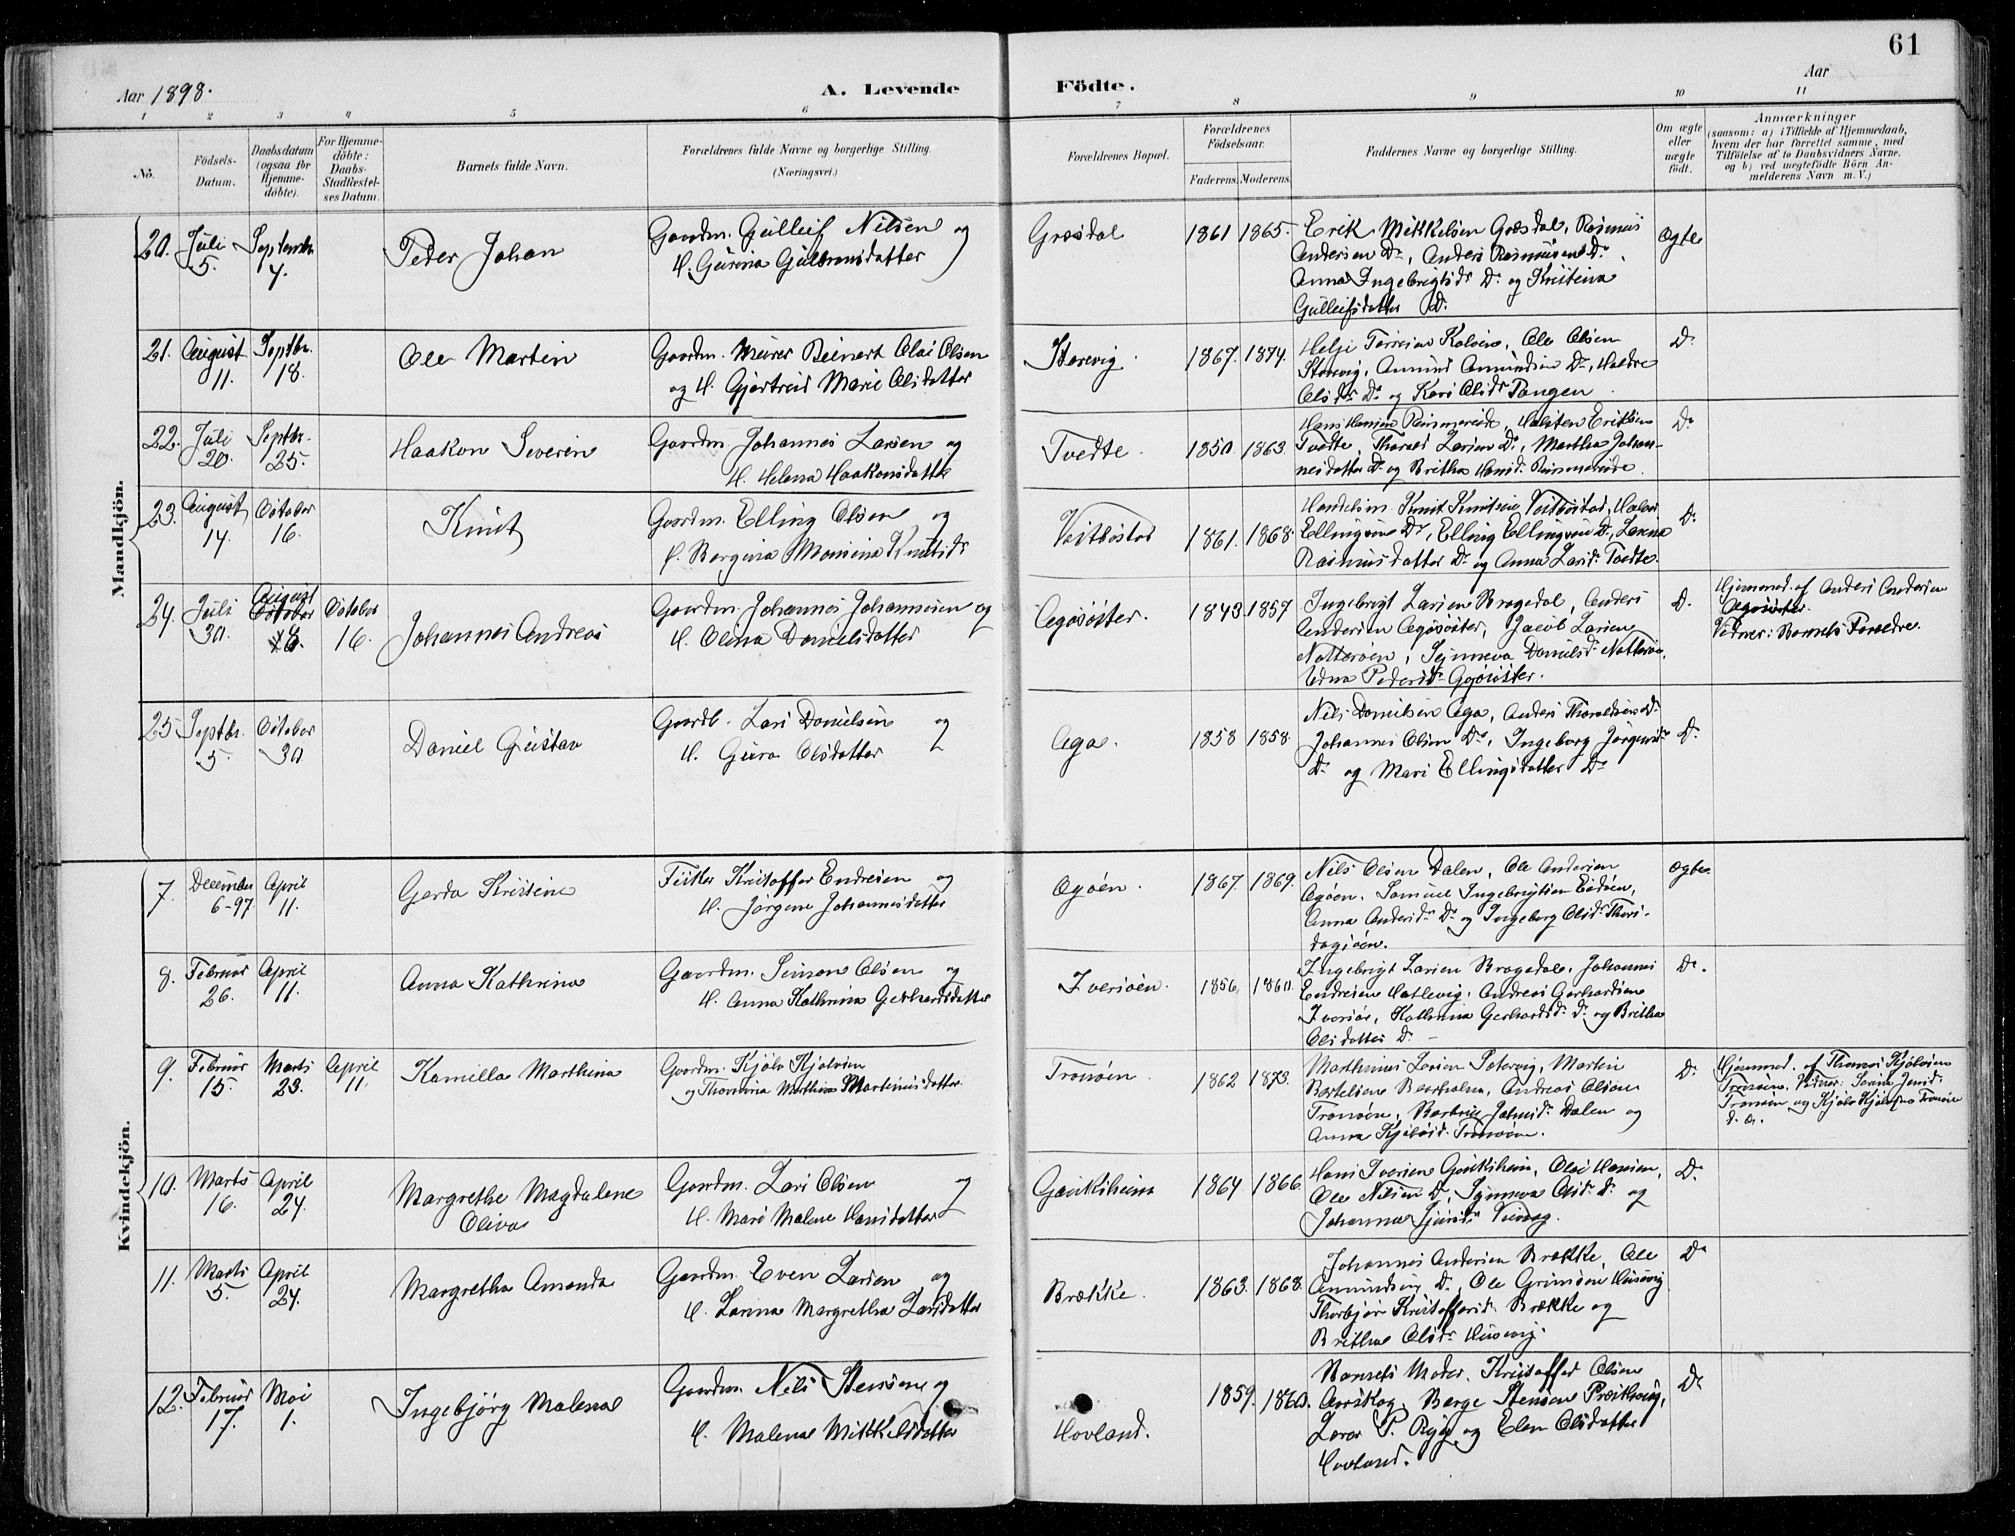 61
Aar 1898.
A. Levende Födte.
Aar
1 2 3 4 5 6 7 8 9 10 11
No.
Födsels-Datum.
Daabsdatum (ogsaa for Hjemme-döbte).
For Hjemme-döbte: Daabs-Stadfæstel-ses Datum.
Barnets fulde Navn.
Forældrenes fulde Navne og borgerlige Stilling.
(Næringsvei.)
Forældrenes Bopæl.
Forældrenes Födselsaar.
Faderens. Moderens.
Faddernes Navne og borgerlige Stilling.
Om ægte eller uægte födt.
Anmærkninger
(saasom: a) i Tilfælde af Hjemmedaab,
hvem der har forrettet samme, med
Tilföielse af to Daabsvidners Navne.
og b) ved uægtefödte Börn An-
melderens Navn m. V.)
Mandkjön.
20. Juli 5. Septembr 4. Peder Johan
Gaardm. Gulleif Nilsen og
H. Gurina Gulbransdatter
Græsdal 1861 1865.
Erik Mikkelsen Græsdal, Rasmus
Andersen Do, Anders Rasmusen Do.
Anna Ingebrigtsdr Do og Kristina
Gulleifsdatter Do.
ægte
21. August 11. Septbr. 18. Ole Martin
Gaardm. Murer Reinert Olai Olsen
og H. Gjertreid Marie Olsdatter
Storevig. 1867. 1874.
Helje Kalven, Ole Olsen
Storevig, Amund Amundsen Do, Haldre
Olsdr Do og Kari Olsdr Tangen
Do
22. Juli 20. Septbr. 25. Haakon Severin
Gaardm. Johannes Larsen og
H. Helena Haakonsdatter
Tvedte. 1850. 1863.
Hans Hansen Rimmereide, Halsten Eriksen
Tvedte, Larsen Do, Martha Johan-
nesdatter Do og Britha Hansd. Rimmereide.
Do
23. August 14. October 16. Knut
Gaardm. Elling Olsen og
H. Bergina Monsina Knutsdr
Veitböstad 1861. 1868.
Handelsm. Knut Knutsen Veitböstad,
Ellingsen Do, Elling Ellingsen Do,
Rasmusdatter Do og Anna Larsdr Tvedte.
Do
24. Juli 30. August October 8. October 16. Johannes Andreas
Gaardm. Johannes Johannesen og
H. Olina Danielsdatter
Agösöster. 1843. 1857
Ingebrigt Larsen Bragedal, Anders
Andersen Agösöster, Jacob Larsen
Natteröen, Synneva Danielsdr Natteröen,
Pedersdr Agösöster.
Do.
Hjemmed. af Anders Andersen
Agösöster.
Vidner: Barnets Foreldre.
25. Septbr. 5. October 30. Daniel Gustav
Gaardb. Lars Danielsen og
H. Guro Olsdatter
Aga. 1858 1858.
Nils Danielsen Aga, Anders Do.
Johannes Olsen Do, Ingeborg
Do og Mari Ellingsdatter Do
Do.
Kvindekjön.
7. December 6-97. April 11. Gerda Kristine
Fisker Kristoffer Endresen og
H. Jørgine Johannesdatter
Agöen. 1867. 1869.
Nils Olsen Dalen, Ole Andersen
Agöen. Samuel Ingebrigtsen
Anna Andersdr Do og Ingeborg Olsdr Thors-
dagsöen.
ægte
8. Februar 26. April 11. Anna Kathrina
Gaardm. Simon Olsen og
H. Anna Kathrina Gerhardsdatter
Iversöen. 1856. 1860.
Ingebrigt Larsen Bragedal, Johannes
Endresen Hatlevig, Andreas Gerhardsen
Iversöe, Kathrina Gerhardsdr Do og Britha
Olsdatter Do
Do.
9. Februar 15. Marts 23. April 11. Kamilla Marthina
Gaardm. Kjölv Kjölvsen
og Thomina Mathina Martinusdatter
Tronöen 1862 1873.
Marthinus Larsen Petervig, Martin
Bertelsen Andreas Olsen
Tronöen, Dalen og
Anna Kjölvsdr Tronöen.
Do
Hjemmed. af Thomas Kjölvsen
Tronöen. Vidner:
Tronöen og Kjölv Kjölvsen Tronöen
d. æ.
10. Marts 16. April 24. Margrethe Magdalene Oliva
Gaardm. Lars Olsen og
H. Mari Malene Hansdatter
Gauksheim 1864. 1866.
Hans Iversen Gauksheim, Olai Hansen,
Ole Nilsen Do, Synneva Olsdr Do og
Johanna
Do
11. Marts 5. April 24. Margretha Amanda
Gaardm. Even Larsen og
H. Larina Margretha Larsdatter
Brække. 1863. 1868.
Johannes Andersen Brække, Ole
Amundsen Do, Ole Grimsen Husevig
Thorbjør Kristoffersdr Brække og
Britha Olsdr Husevig.
Do
12. Februar 17. Mai 1. Ingebjörg Malena
Gaardm. Nils Stensen og
H. Malena Mikkelsdatter
Hovland. 1859. 1860.
Barnets Moder, Kristoffer Olsen
Aarskog, Berge Stensen
Lærer P. og Elen Olsdatter
Hovland.
Do